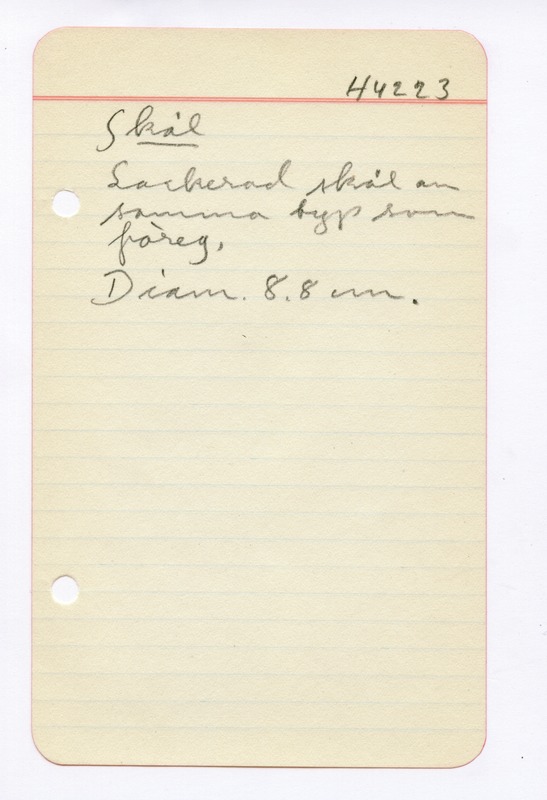 H4223
Skål
Lackerad skål av
samma typ som
föreg.
Diam. 8.8 cm.